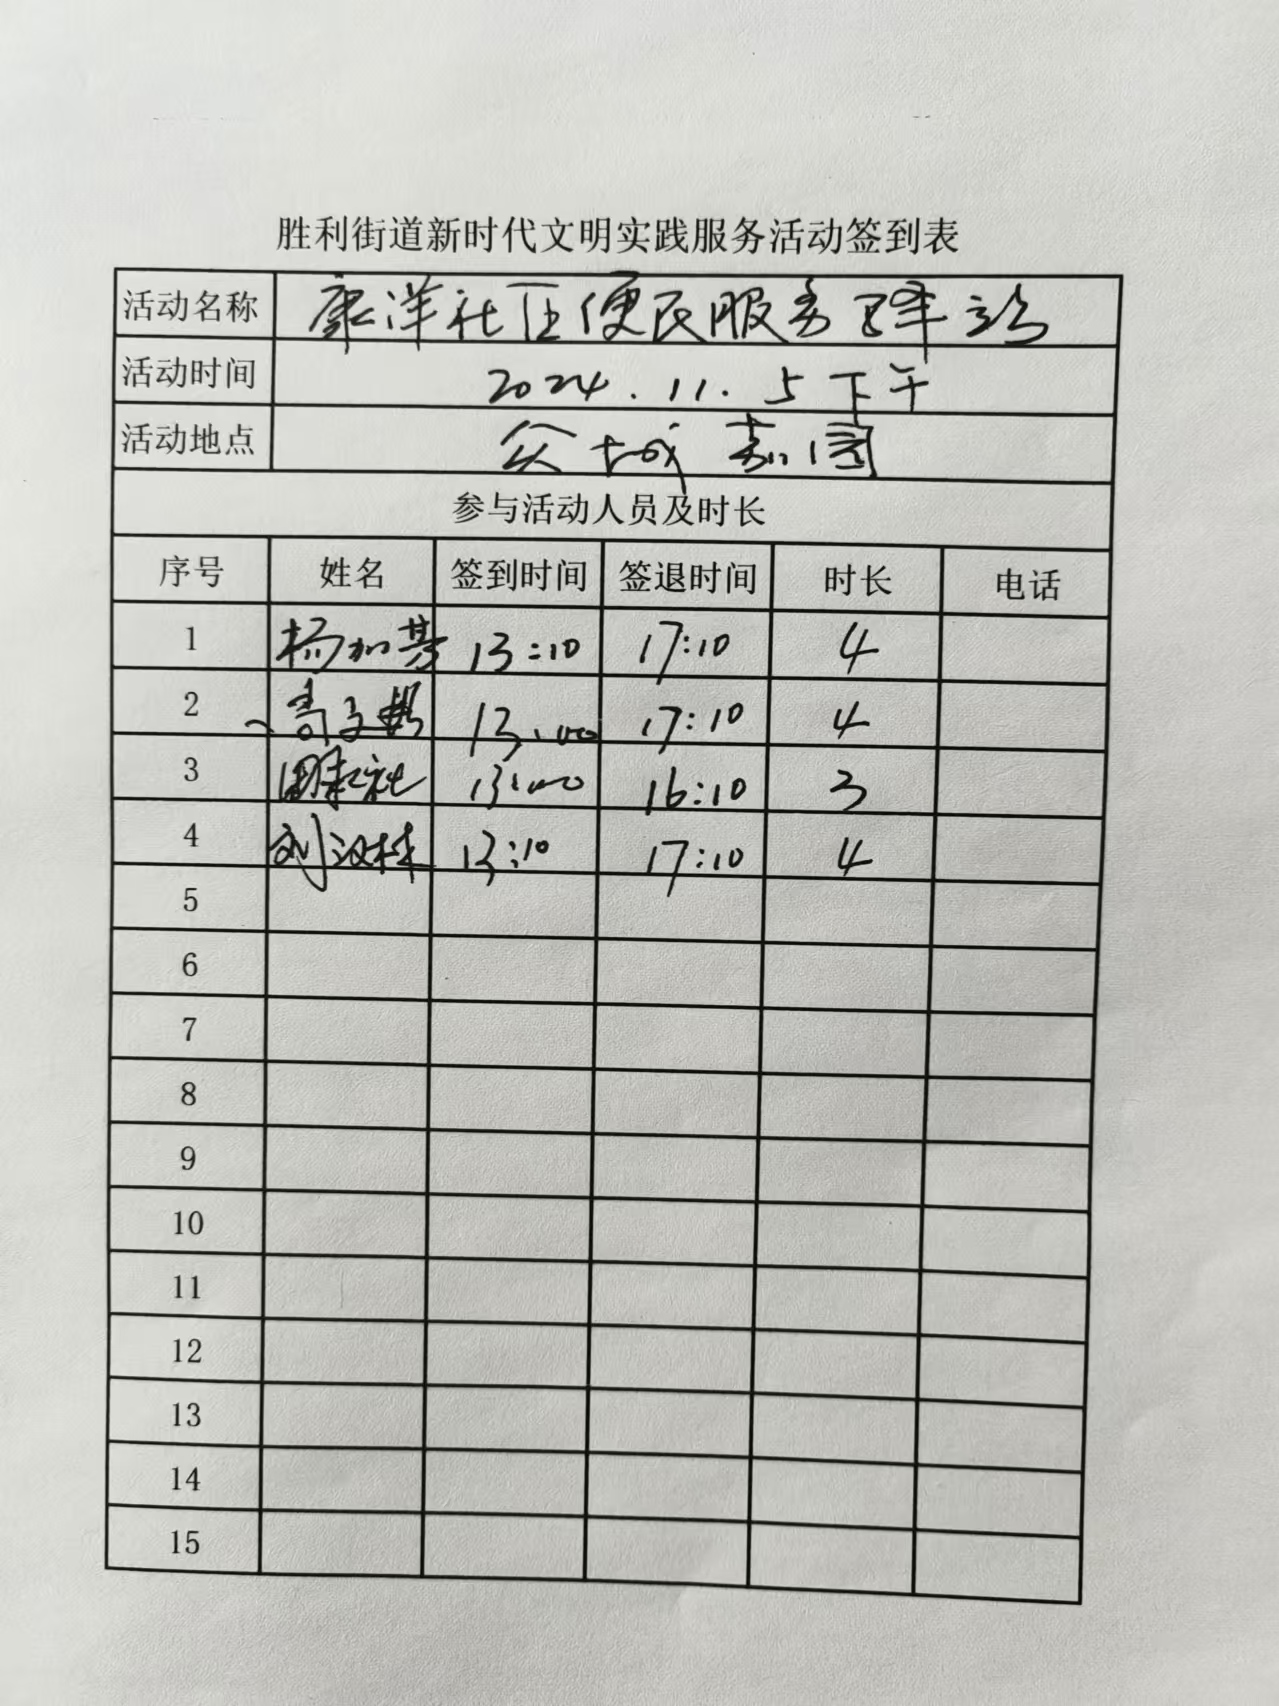 胜利街道新时代文明实践服务活动签到表
活动名称 康洋社区便民服务驿站
活动时间 2024.11.5下午
活动地点 众城嘉园
参与活动人员及时长
序号 姓名 签到时间 签退时间 时长 电话
1 杨加芬 13:10 17:10 4
2 13:00 17:10 4
3 13:00 16:10 3
4 刘汉林 13:10 17:10 4
5
6
7
8
9
10
11
12
13
14
15